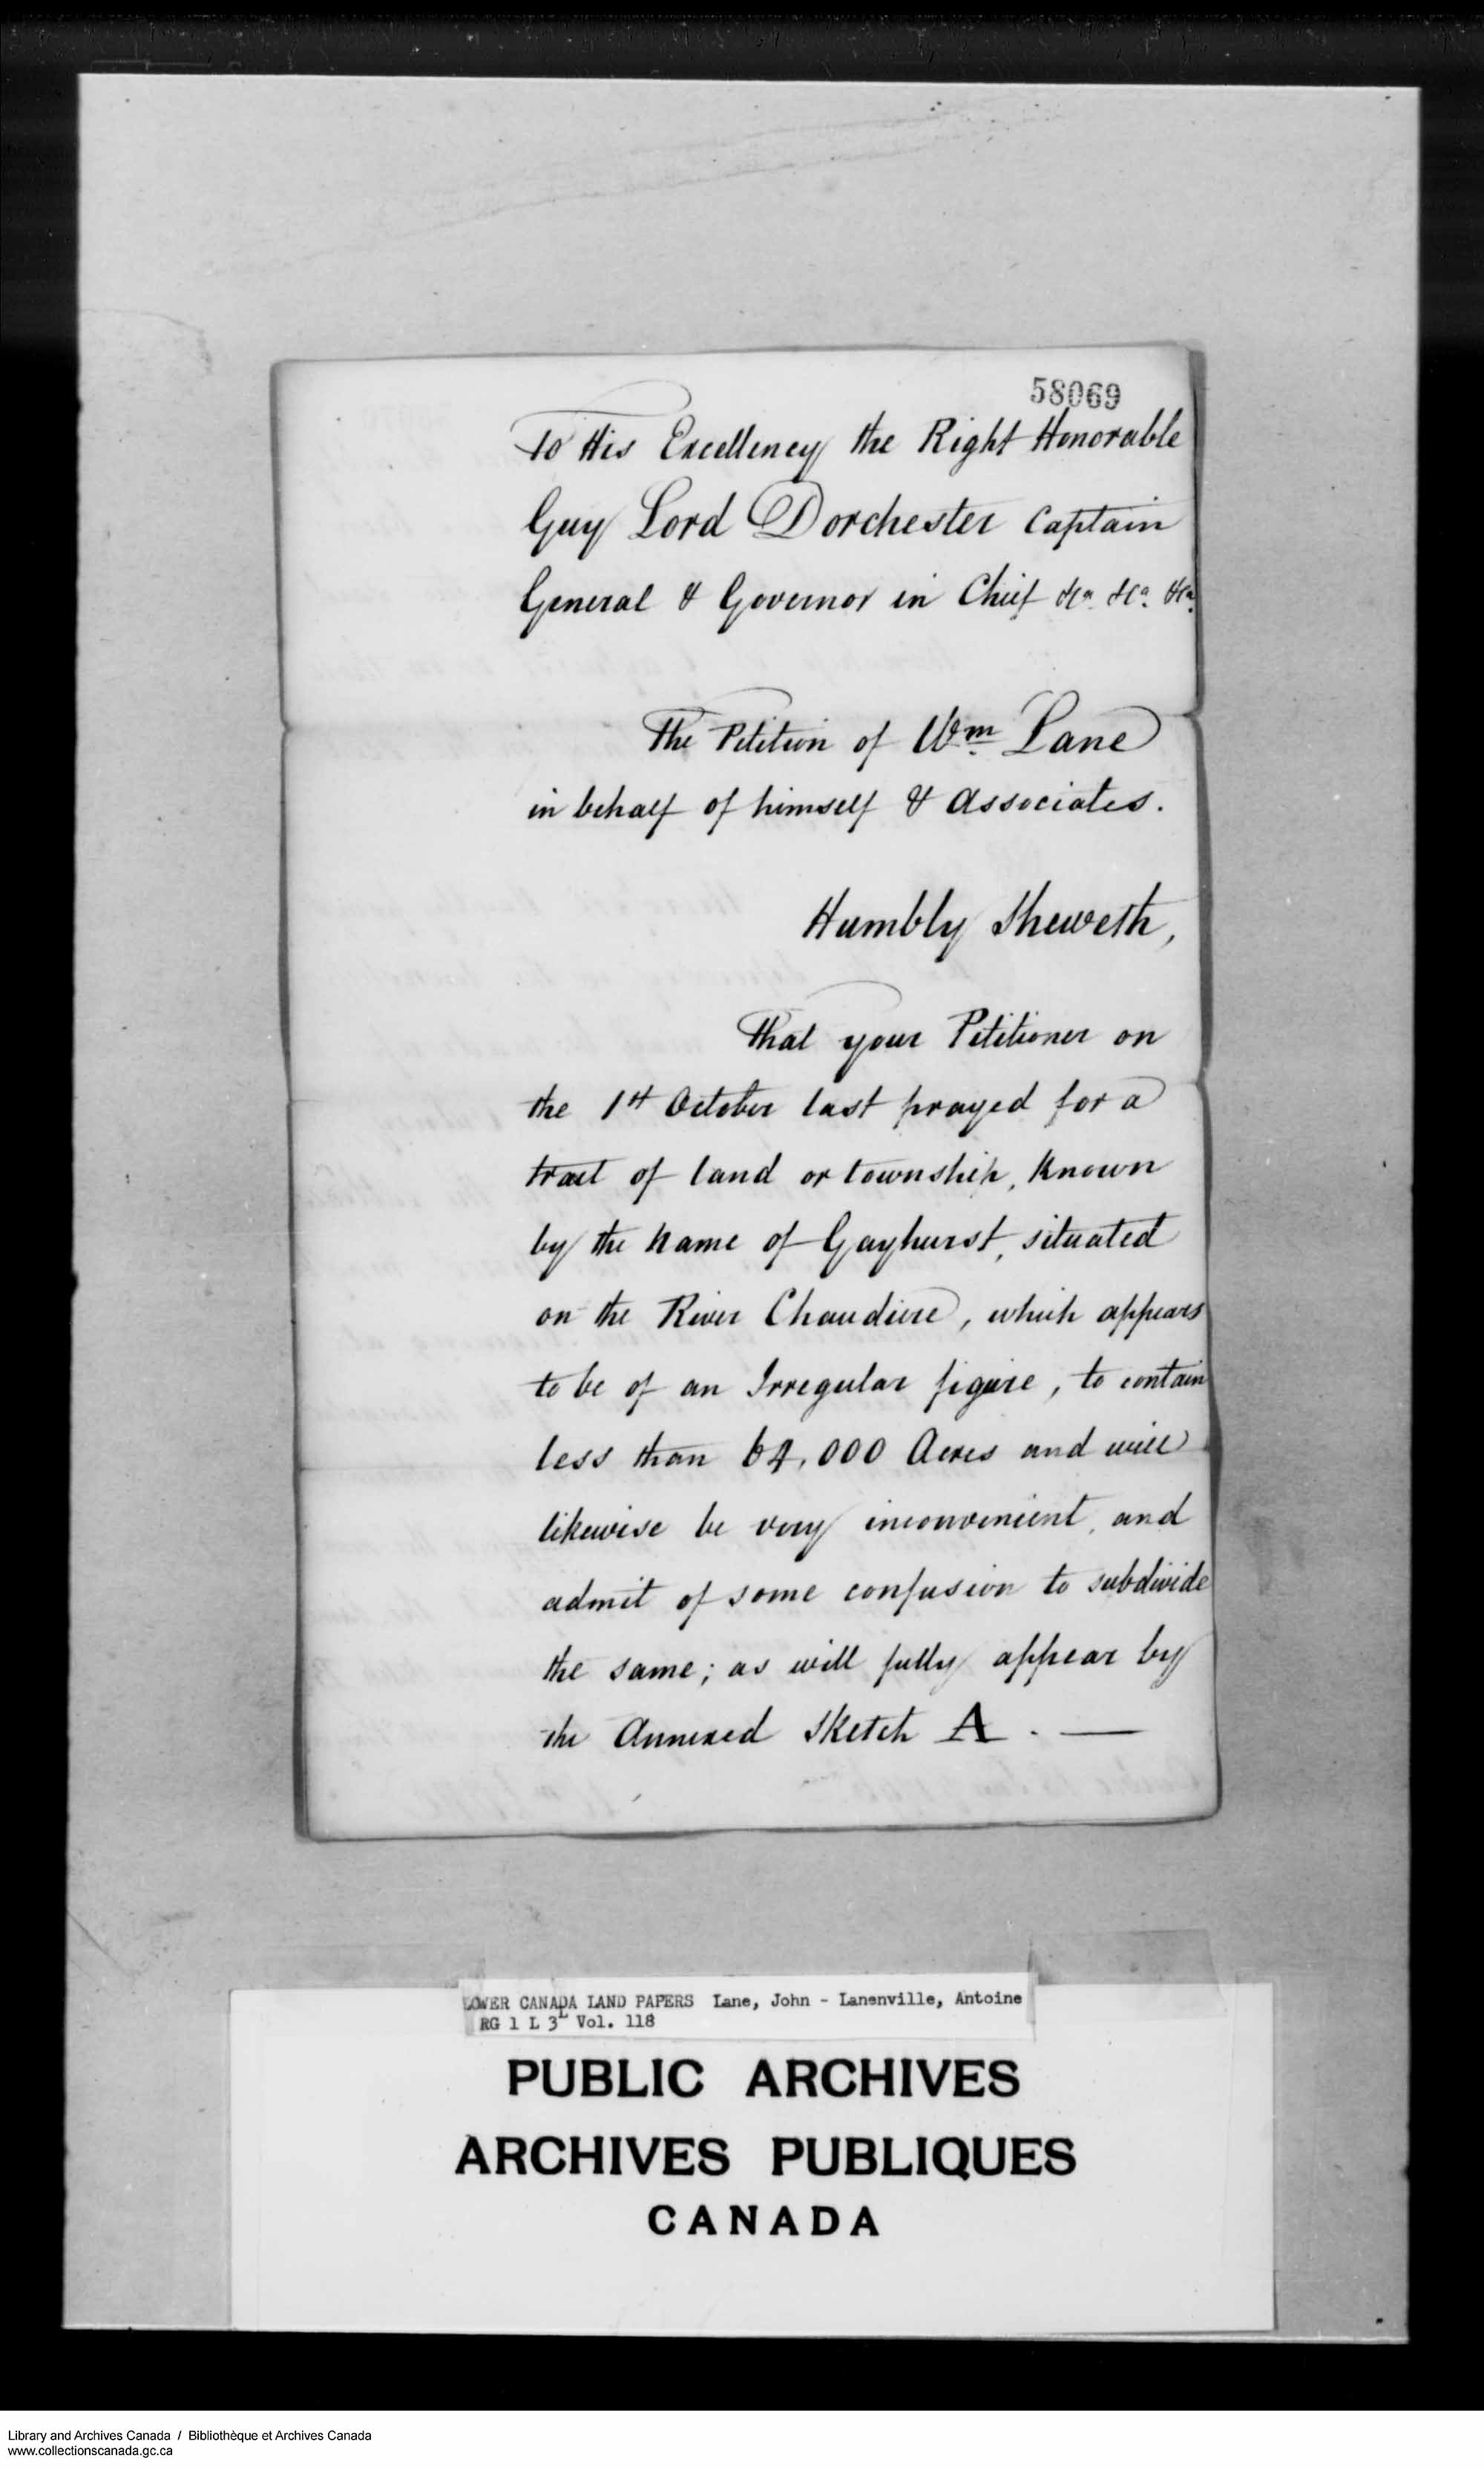 58069
To His Excellency the Right Honorable
Guy Lord Dorchester Captain
General & Governor in Chief &ca. &ca. &ca.
The Petition of Wm. Lane
in behalf of himself & Associates.
Humbly Sheweth,
That your Petitioner on
the 1st October last prayed for a
tract of land or township, known
by the name of Gayhurst, situated
on the River Chaudiere, which appears
to be of an Irregular figure, to contain
less than 64,000 Acres and will
likewise be very inconvenient, and
admit of some confusion to subdivide
the same; as will fully appear by
the Annexed Sketch A. —
LOWER CANADA LAND PAPERS Lane, John - Lanenville, Antoine
RG 1 L 3L Vol. 118
PUBLIC ARCHIVES
ARCHIVES PUBLIQUES
CANADA
Library and Archives Canada / Bibliothèque et Archives Canada
www.collectionscanada.gc.ca